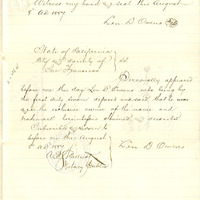 Witness my hand & seal this August
8 AD 1887
Len D Owens
State of California
City & County of } ss
San Francisco
Personally appeared
before me this day Len D Owens who being by
me first duly sworn deposes and said that he was
the owner of the
described
Subscribed & Sworn to
before me this August
8 AD 1887
Len D Owens
Notary Public